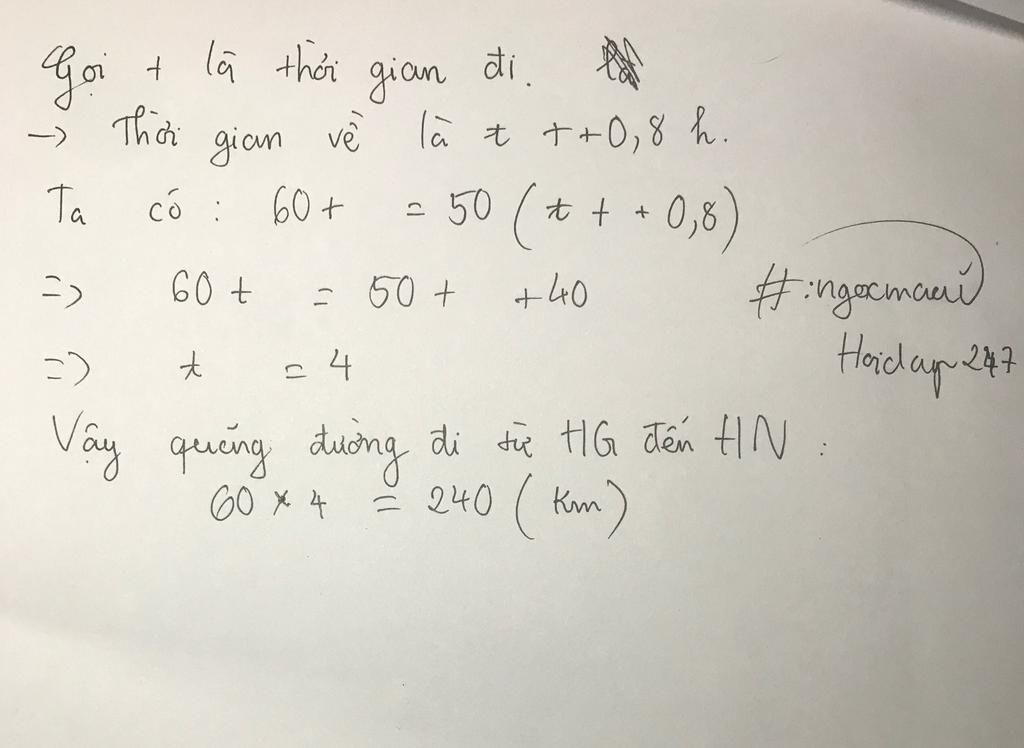 Gọi t là thời gian đi.
→ Thời gian về là t + +0,8 h.
Ta có : 60t = 50 (t + + 0,8)
=> 60t = 50t +40
=> t = 4
Vậy quãng đường đi từ HG đến HN :
60 × 4 = 240 (km)
#:ngocmauí
Hoidap247